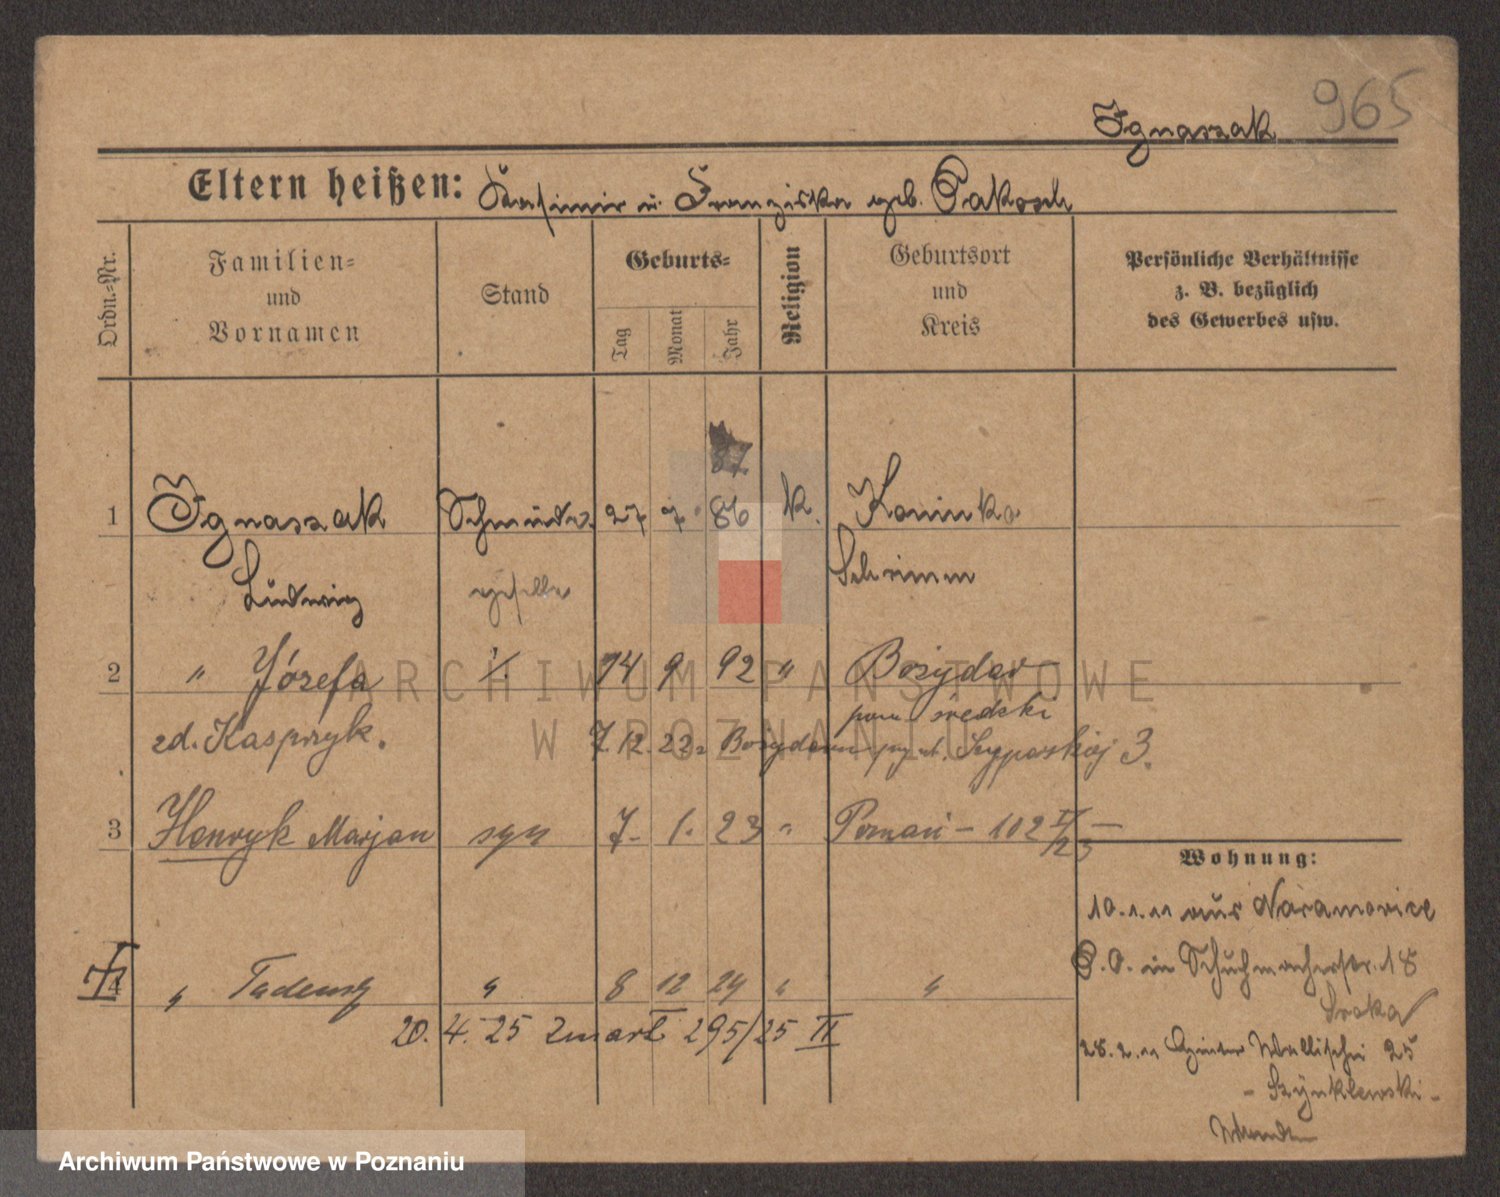 965
Ignaszak
Eltern heißen: Kasimir u. Franziska geb. Pakosch
Ordn.-Nr.
Familien-
und
Vornamen
Stand
Geburts-
Tag
Monat
Jahr
Religion
Geburtsort
und
Kreis
Persönliche Verhältnisse
z. B. bezüglich
des Gewerbes usw.
87
1 Ignaszak Schmiede 27 7. 86 k. Koninko
Ludwig geselle Schrimm
2 " Józefa ż. 14 9 92 " Bożydar
pow. średzki
zd. Kasprzyk. 7.12.22 3.
3 Henryk Marjan syn 7. 1. 23 " Poznań – 102 IV/23 –
4 " Tadeusz " 8 12 24 " "
20. 4. 25 zmarł 295/25 II
Wohnung:
10.1.11 aus Naramowice
P. O. in Schuhmacherstr. 18
Sroka
28.2.11 Wallischei 25
- Szynklewski -
ARCHIWUM PAŃSTWOWE
W POZNANIU
Archiwum Państwowe w Poznaniu